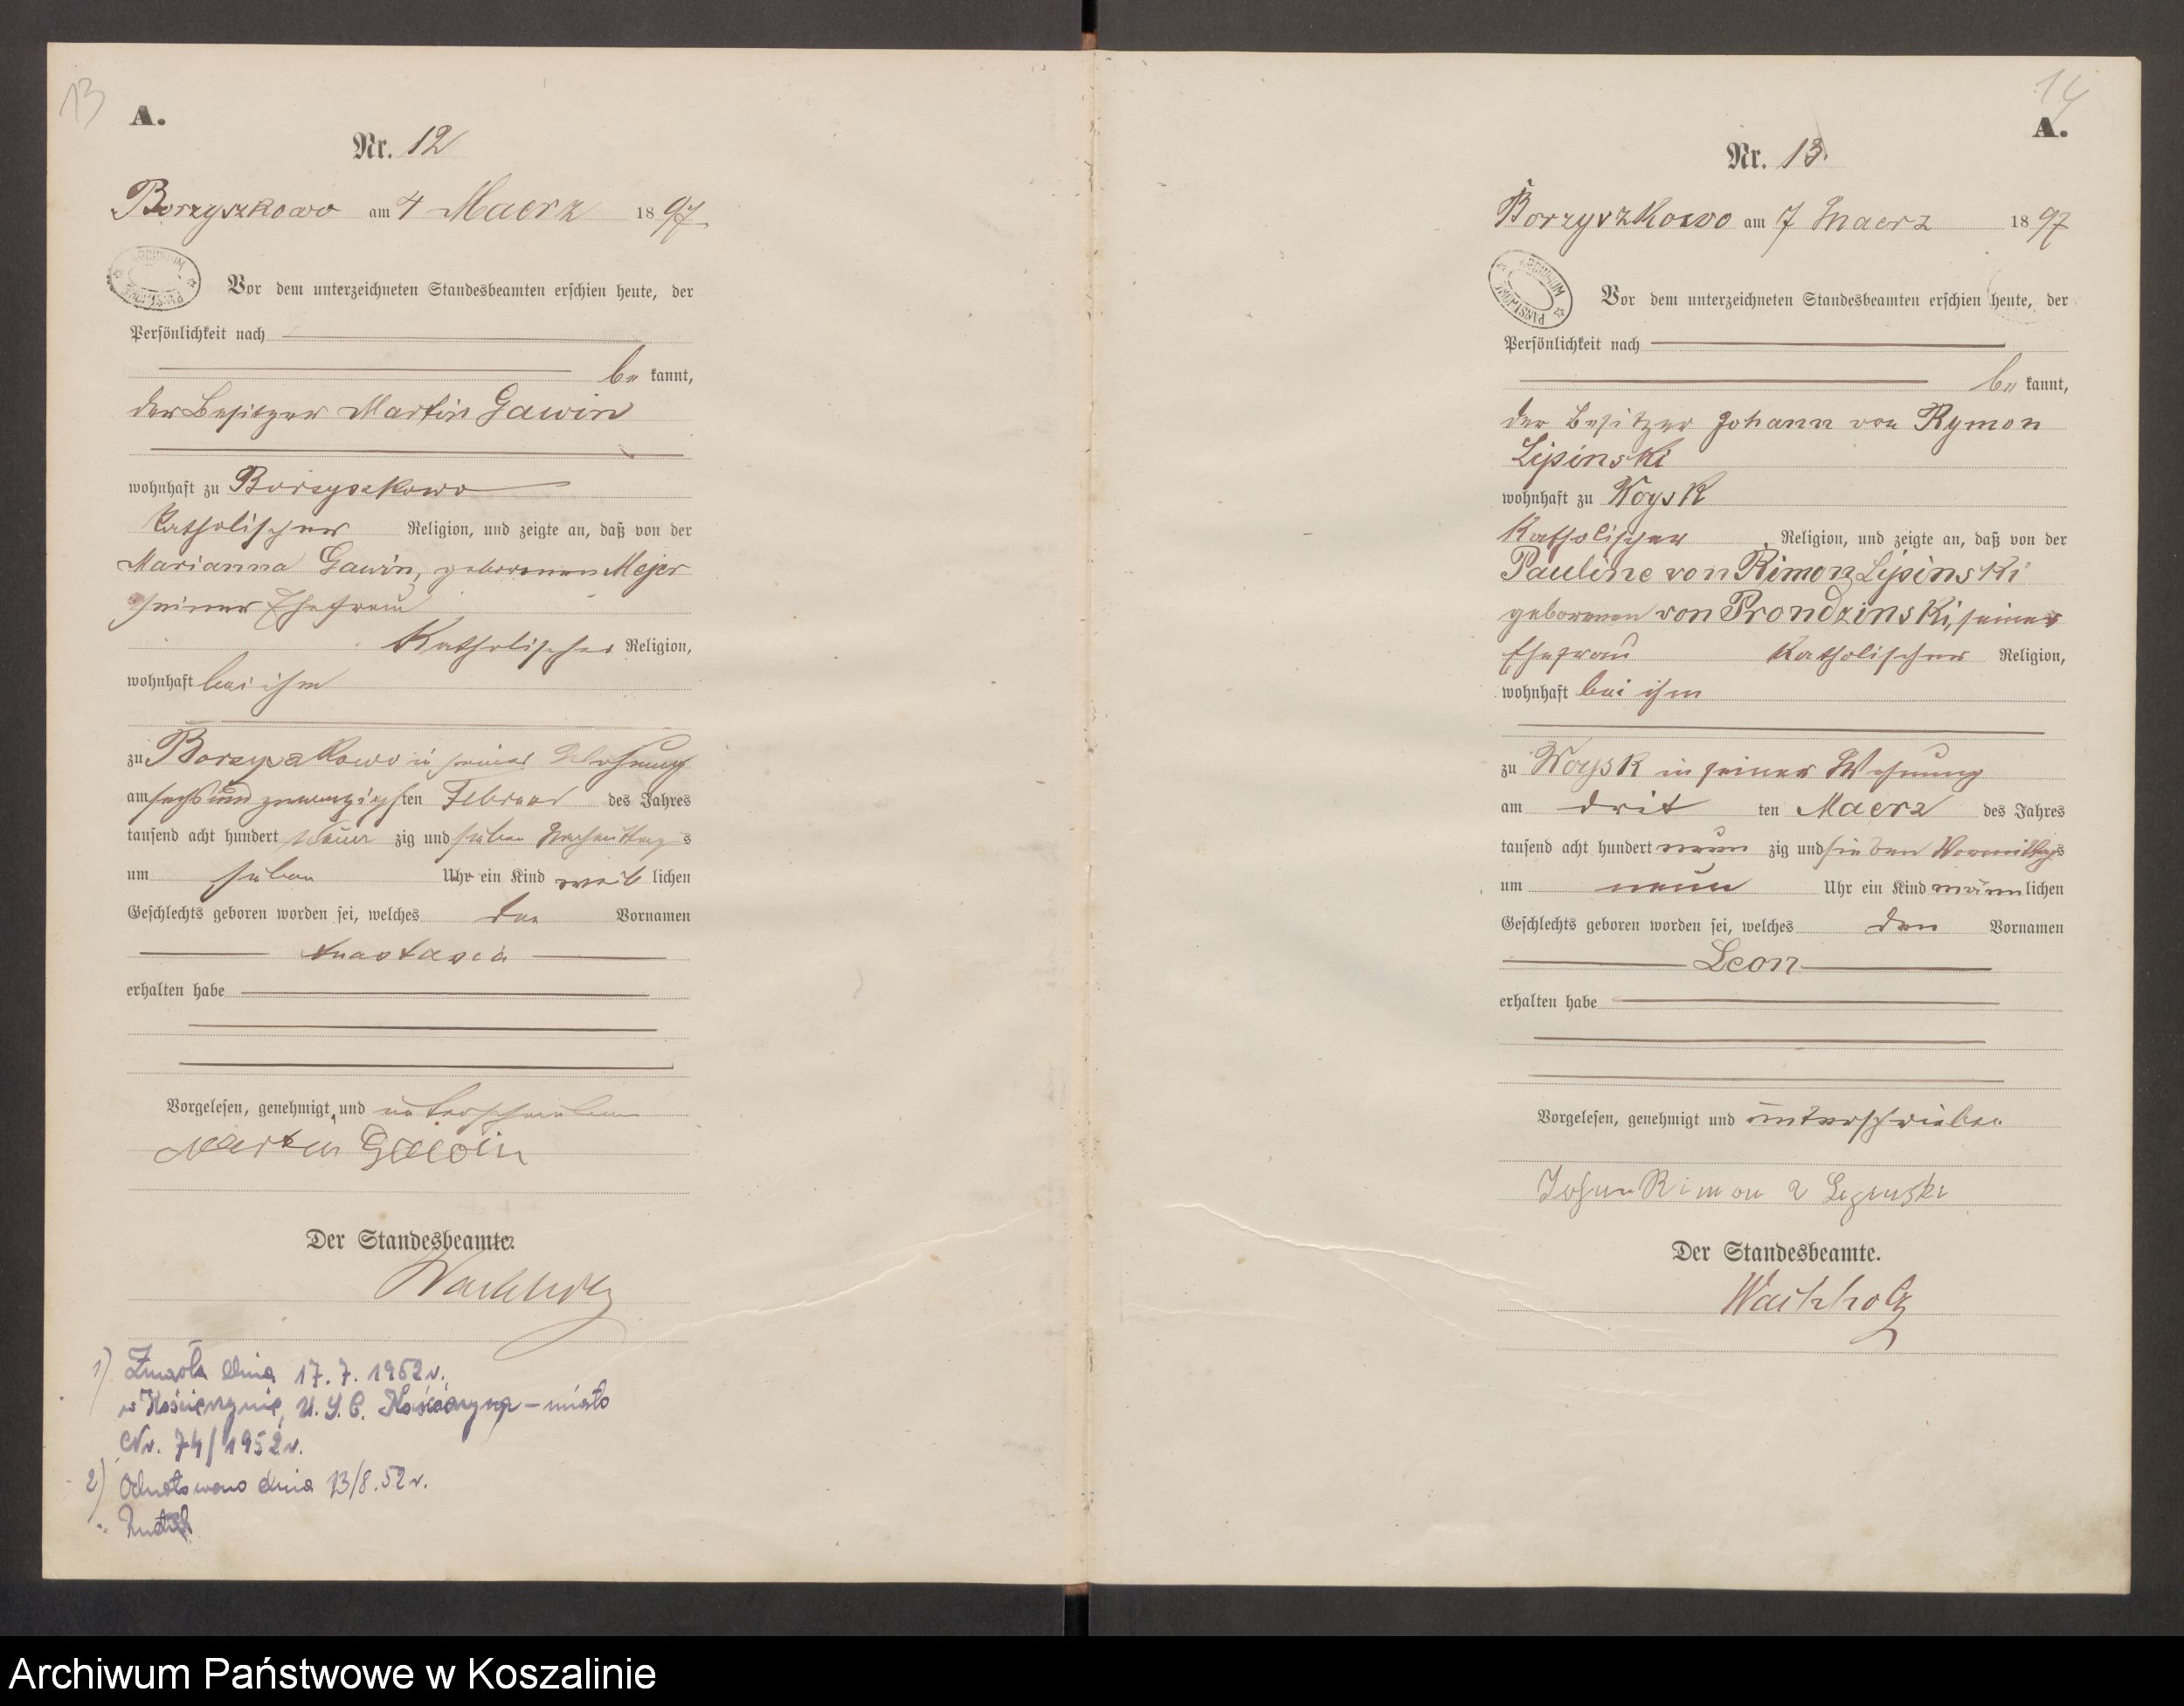 13
A.
Nr. 12
Borzyszkowo am 4 Maerz 1897
ARCHIWUM PAŃSTWOWE
Vor dem unterzeichneten Standesbeamten erschien heute, der
Persönlichkeit nach
be kannt,
der Besitzer Martin Gawin
wohnhaft zu Borzyszkowo
katholischer Religion, und zeigte an, daß von der
Marianna Gawin, geborenen Mejer
seiner Ehefrau
Katholischer Religion,
wohnhaft bei ihm
zu Borzyszkowo in seiner Wohnung
am sechs und zwanzigsten Februar des Jahres
tausend acht hundert neun zig und sieben Nachmittags
um sieben Uhr ein Kind weib lichen
Geschlechts geboren worden sei, welches den Vornamen
Anastasia
erhalten habe
Vorgelesen, genehmigt und unterschrieben
Martin Gawin
Der Standesbeamte.
Wachholz
1) Zmarła dnia 17.7.1952 r.
w Kościerzynie, U.S.C. Kościerzyna – miasto
Nr. 74/1952 r.
2) Odnotowano dnia 13/8.52 r.
14
A.
Nr. 13.
Borzyszkowo am 7 Maerz 1897
ARCHIWUM PAŃSTWOWE
Vor dem unterzeichneten Standesbeamten erschien heute, der
Persönlichkeit nach
be kannt,
der Besitzer Johann von Rymon
Lipinski
wohnhaft zu Woysk
Katholischer Religion, und zeigte an, daß von der
Pauline von Rimon Lipinski
geborenen von Prondzinski, seiner
Ehefrau Katholischer Religion,
wohnhaft bei ihm
zu Woysk in seiner Wohnung
am drit ten Maerz des Jahres
tausend acht hundert neun zig und sieben Vormittags
um neun Uhr ein Kind männ lichen
Geschlechts geboren worden sei, welches den Vornamen
Leon
erhalten habe
Vorgelesen, genehmigt und unterschrieben
Johann Rimon v Lipinski
Der Standesbeamte.
Wachholz
Archiwum Państwowe w Koszalinie